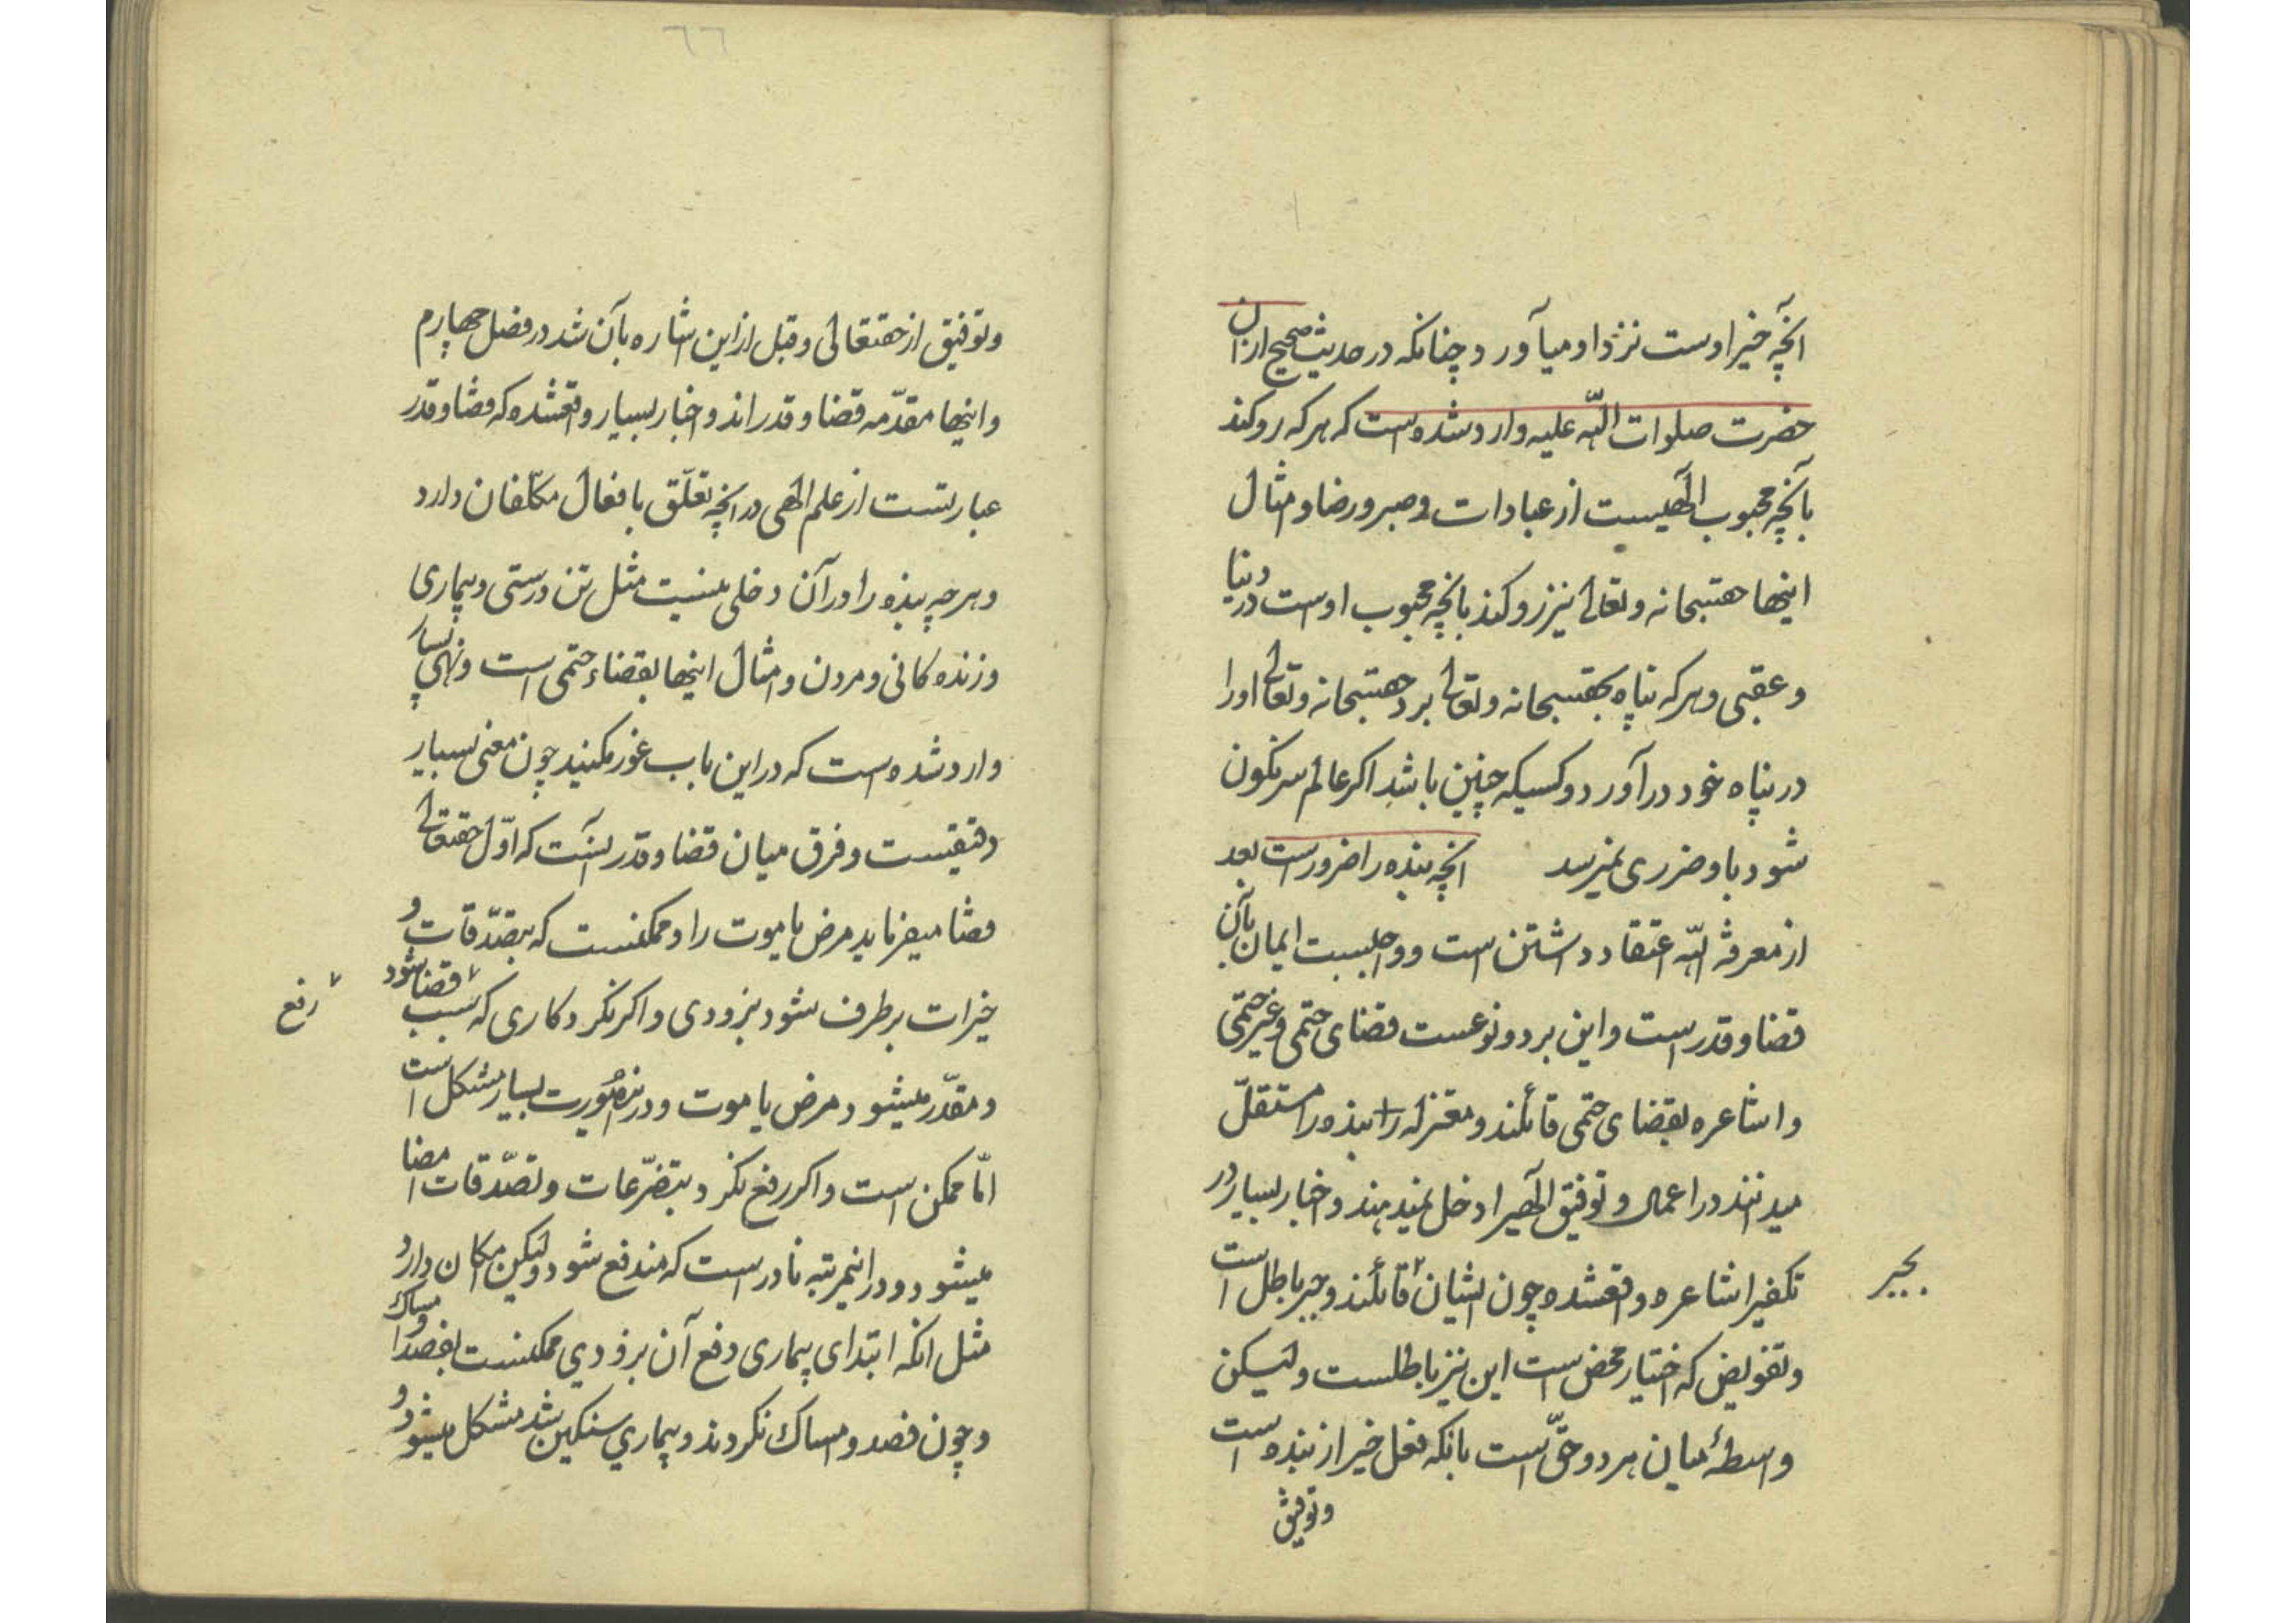 آنچه خیر اوست نزد او میآورد چنانکه در حدیث صحیح از ان
حضرت صلوات اللّه علیه وارد شده است که هر که رو کند
بآنچه محبوب الهیست از عبادات و صبر و رضا و امثال
اینها حقسبحانه و تعالی نیز رو کند بآنچه محبوب اوست در دنیا
و عقبی و هر که پناه بحقسبحانه و تعالی برد حقسبحانه و تعالی او را
در پناه خود در آورد و کسیکه چنین باشد اکر عالم سرنکون
شود باو ضرری نمیرسد انچه بنده را ضرورست بعد
از معرفة اللّه اعتقاد داشتن است و واجبست ایمان بآن
قضا و قدر است و این بر دو نوعست قضای حتمی و غیر حتمی
و اشاعره بقضای حتمی قائلند و معتزله بنده را مستقلّ
میدانند در اعمال و توفیق الهی را دخل نمیدهند و اخبار بسیار در
تکفیر اشاعره واقعشده چون ایشان قائلند و جبر باطل است
بجبر
و تفویض که اختیار محض است این نیز باطلست و لیکن
واسطهٔ میان هر دو حقّ است بانکه فعل خیر از بنده است
و توفیق
٦٦
و توفیق از حقتعالی و قبل از این اشاره بآن شد در فصل چهارم
و اینها مقدّمه قضا و قدراند و اخبار بسیار واقعشده که قضا و قدر
عبارتست از علم الهی در انچه تعلّق بافعال مکلّفان دارد
و هر چه بنده را در آن دخلی نیست مثل تن درستی و بیماری
و زنده کانی و مردن و امثال اینها بقضاء حتمی است و نهی بسیار
وارد شده است که در این باب غور مکنید چون معنی بسیار
دقیقیست و فرق میان قضا و قدر اینست که اوّل حقتعالی
قضا میفرماید مرض یا موت را و ممکنست که بتصدّقات و
خیرات بر طرف شود بزودی و اکر نکرد کاری که سبب قضا شود
رفع
و مقدّر میشود مرض یا موت و در اینصورت بسیار مشکل است
امّا ممکن است و اکر رفع نکرد بتضرّعات و تصدّقات امضا
میشود و در اینمرتبه نادر است که مندفع شود و لیکن امکان دارد
مثل انکه ابتدای بیماری دفع آن بزودی ممکنست بفصد و امساک
و چون فصد و امساک نکردند و بیماری سنکین شد مشکل میشود و